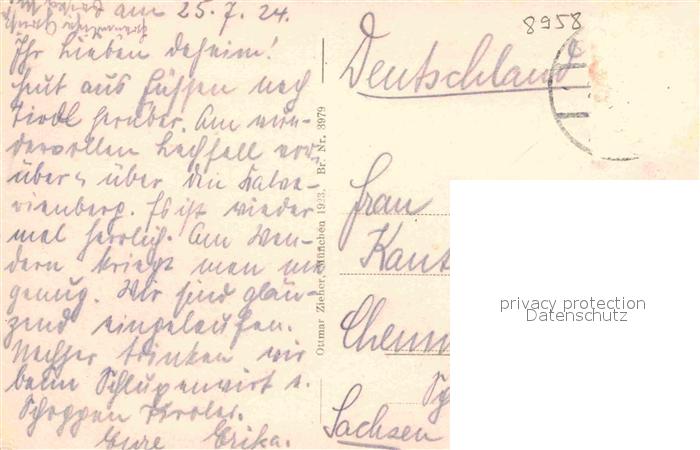 am 25.7.24.
Ihr Lieben daheim!
Heut aus Füssen nach
Tirol herüber. Am wun-
dervollen Lechfall vor-
über, über den Kalva-
rienberg. Es ist wieder
mal herrlich. Am Wan-
dern kriegt man nie
genug. Wir sind glän-
zend eingelaufen.
Nachher trinken wir
beim Schluxenwirt e.
Schoppen Tiroler.
Eure Erika.
Ottmar Zieher, München 1923. Br. Nr. 3979
8958
Deutschland
Frau
Kant
Chemn
Sachsen
privacy protection
Datenschutz